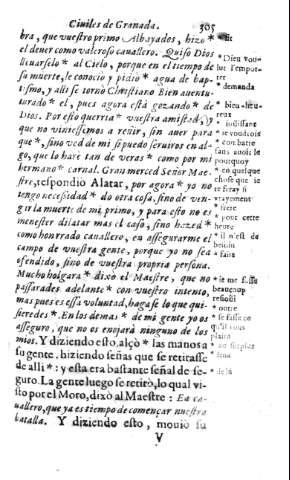 Ciuiles de Granada. 305
bra, que vuestro primo Albayados, hizo *
el deuer como valeroso cauallero. Quiso Dios
lleuarselo * al Cielo, porque en el tiempo de
su muerte, le conocio y pidio * agua de bap-
tismo, y alli se tornò Christiano Bien auentu-
turado * el, pues agora està gozando * de
Dios. Por esto querria * vuestra amistad, y
que no viniessemos a reñir, sin auer para
que *, sino ved de mi si puedo seruiros en al-
go, que lo harè tan de veras * como por mi
hermano * carnal. Gran merced Señor Mae-
stre, respondiò Alatar, por agora * yo no
tengo necessidad * do otra cosa, sino de ven-
gir la muerte de mi primo, y para esto no es
menester dilatar mas el caso, sino hazed *
como honrado cauallero, en assegurarme el
campo de vuestra gente, porque yo no sea
ofendido, sino de vuestra propria persona.
Mucho holgara * dixò el Maestre, que no
passarades adelante * con vuestro intento,
mas pues es essa voluntad, hagase lo que qui-
sieredes *. En los demas * de mi gente yo os
asseguro, que no os enojarà ninguno de los
mios. Y diziendo esto, alçò * las manos a
su gente, hiziendo señas que se retirasse
de alli * : y esta era bastante señal de se-
guro. La gente luego se retirò, lo qual vi-
sto por el Moro, dixò al Maestre : Ea ca-
uallero, que ya es tiempo de començar nuestra
batalla. Y diziendo esto, mouiò su
V
* Dieu vou-
lut l'empor-
ter
* demanda
* bien-heu-
reux
* jouissant
* je voudrois
* combatre
sans auoir le
pourquoy
* en quelque
chose que je
le feray si
vrayement
* frere
* pour cette
heure
* il n'est de
besoin
* faite
* je me fusse
beaucoup
resioüi
* outre
* se fasse ce
qu'il vous
plaira
* au surplus
* leua
* de là